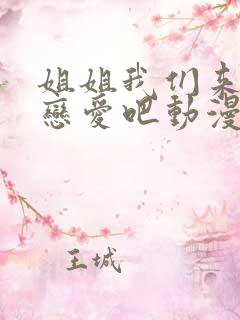 姐姐我们来
戀愛吧動漫
王城